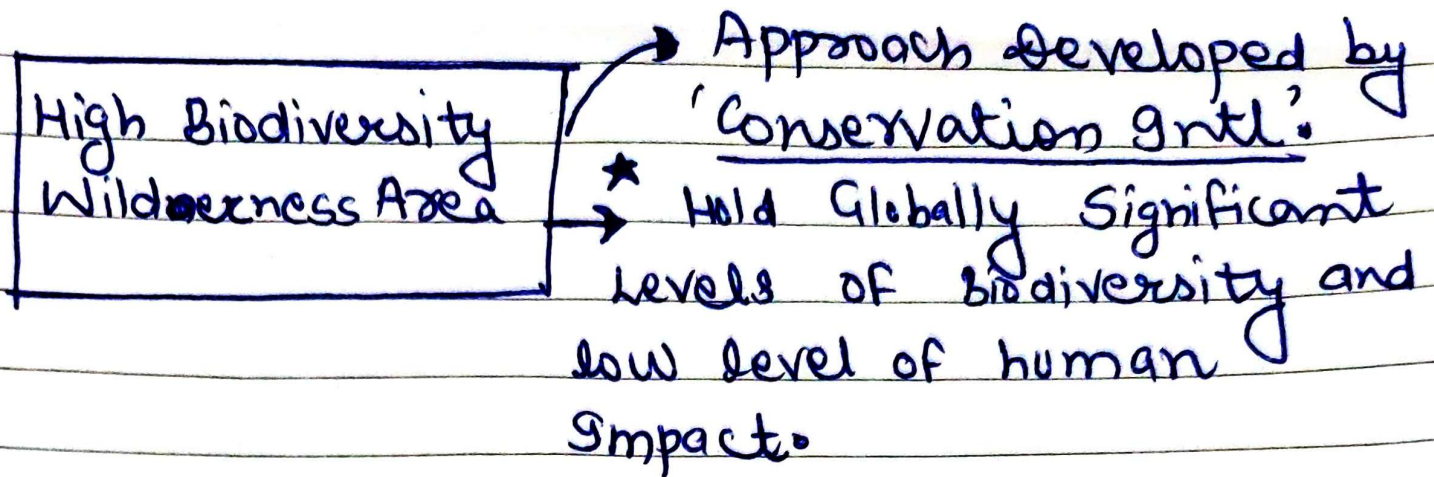 High Biodiversity
Wilderness Area
Approach Developed by
'Conservation Intl'.
★ Hold Globally Significant
Levels of Biodiversity and
low level of human
Impact.